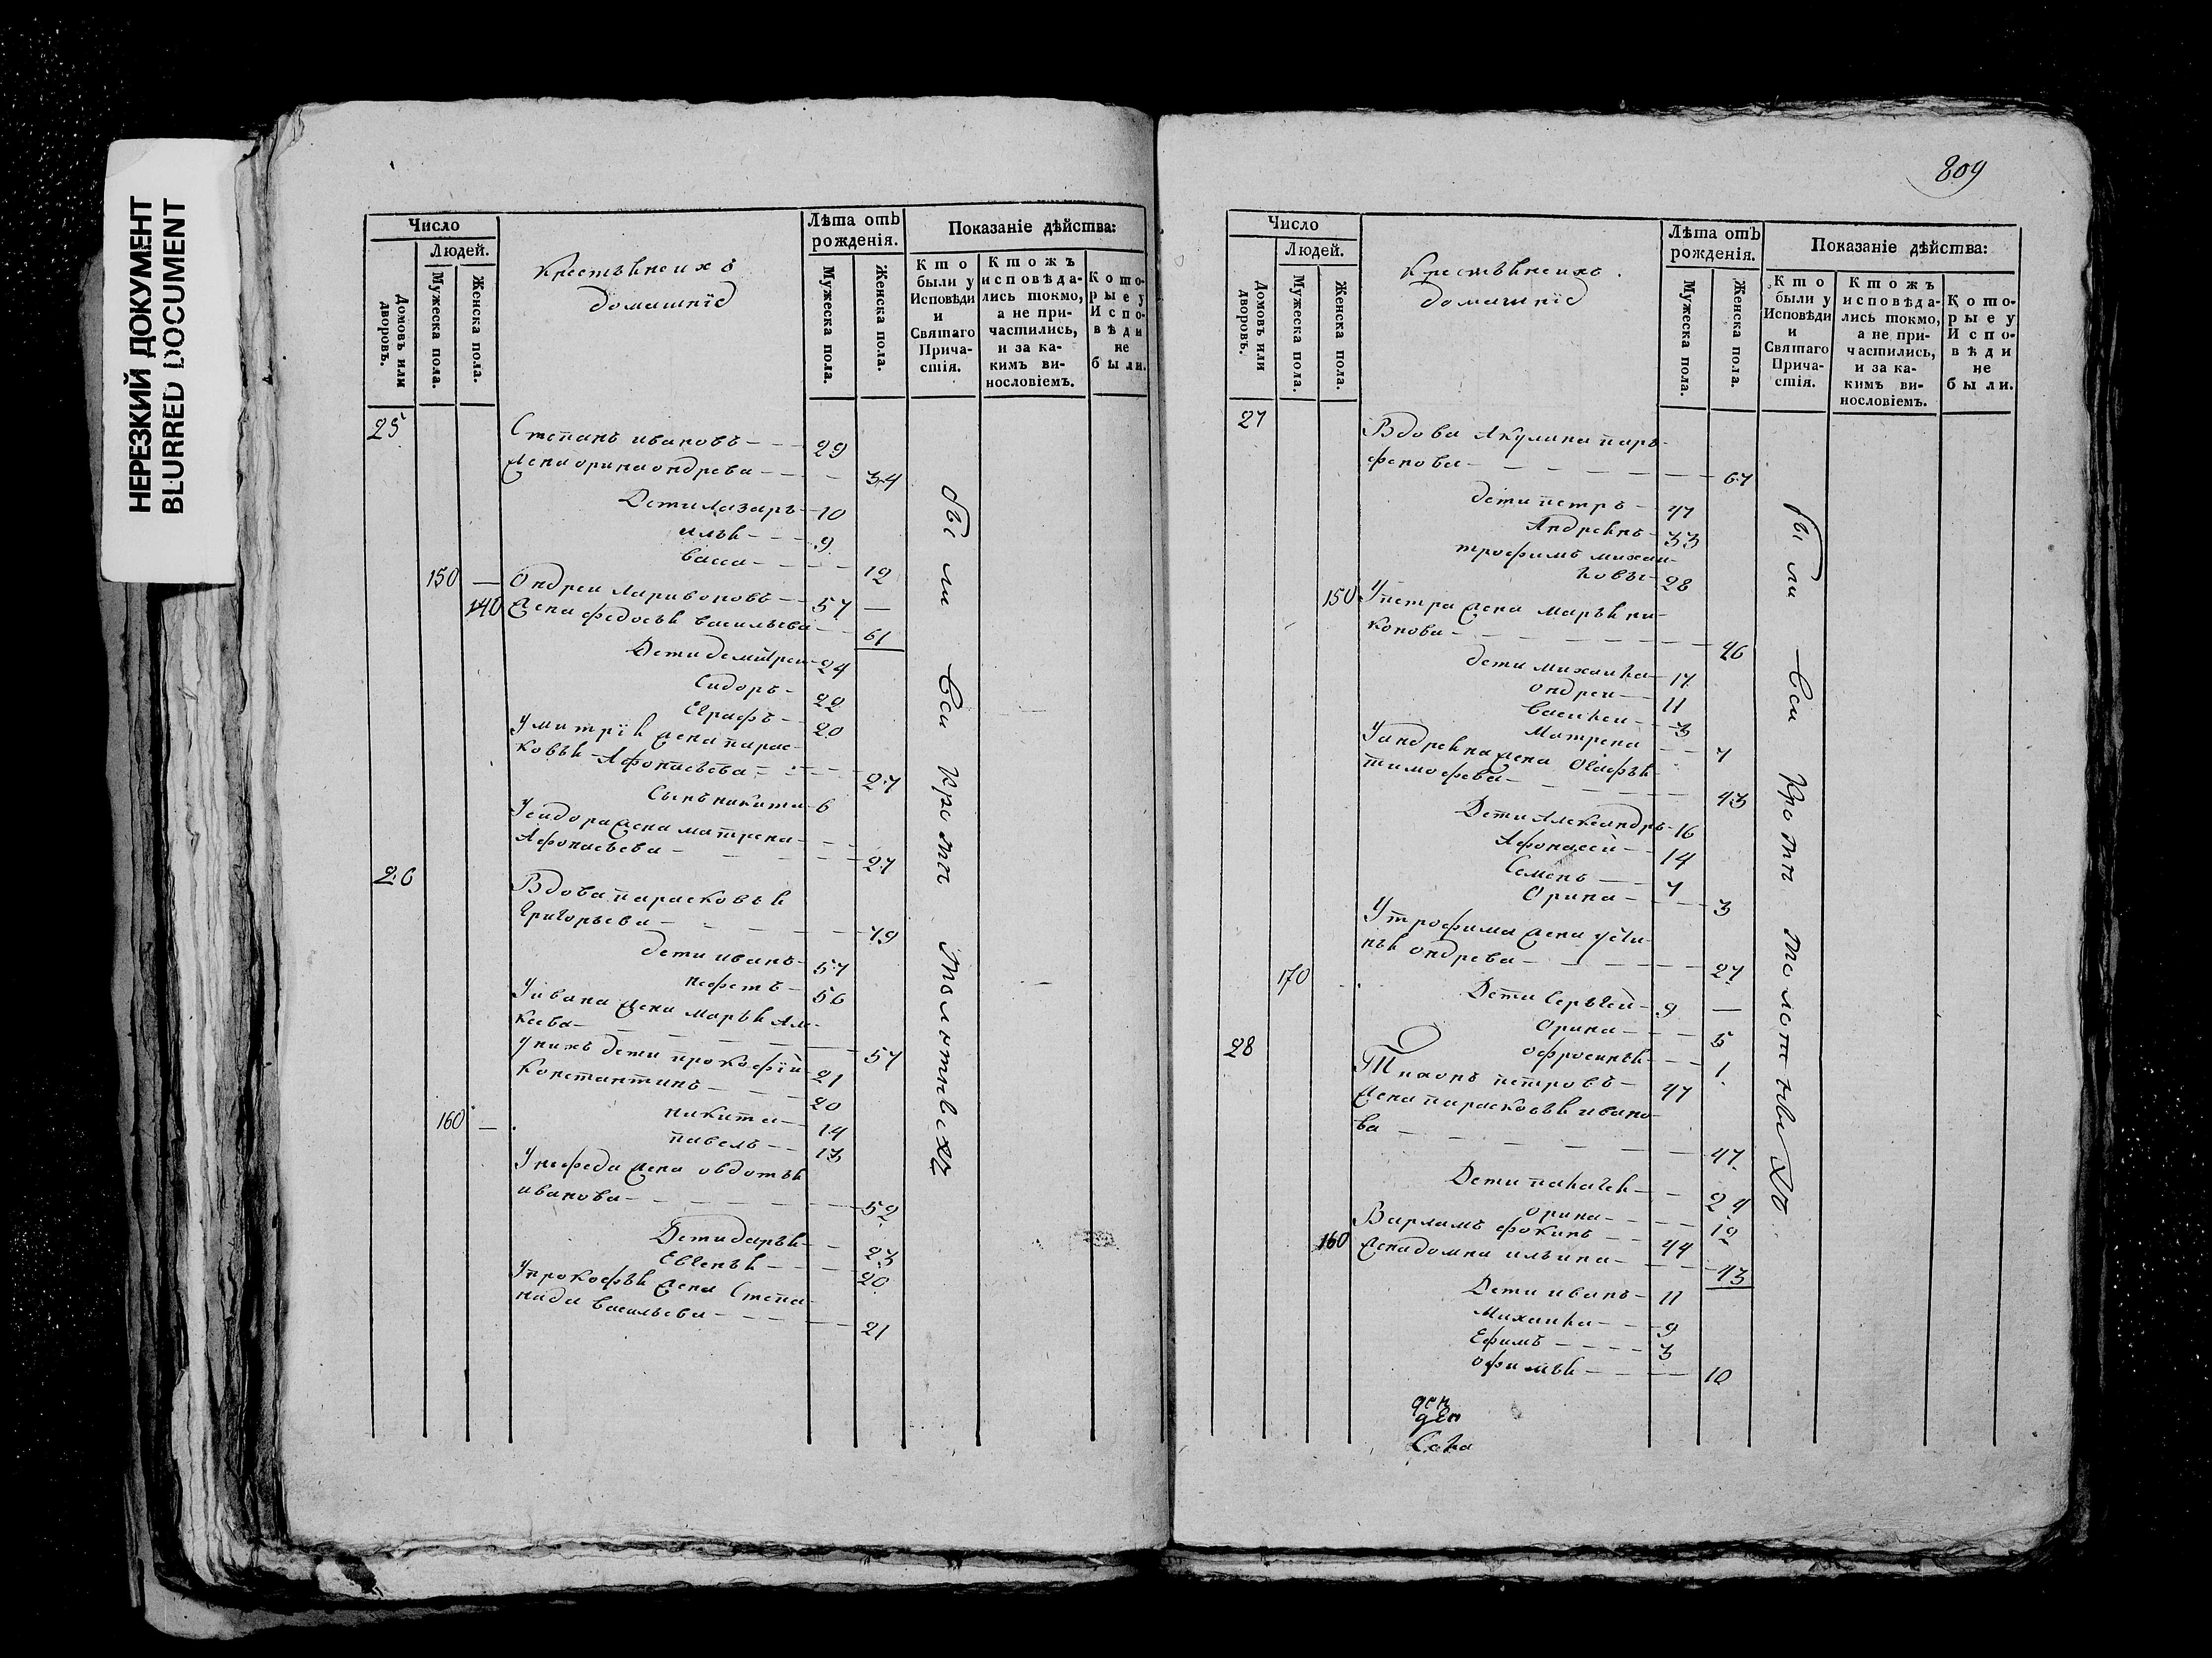 НЕРЕЗКИЙ ДОКУМЕНТ
BLURRED DOCUMENT
Число
Людей.
Домовъ или дворовъ.
Мужеска пола.
Женска пола.
Крестьянскихъ
домашніе
Лѣта отъ рожденія.
Мужеска пола.
Женска пола.
Показаніе дѣйства:
Кто были у Исповѣди и Святаго Причастія.
Ктожъ исповѣдались токмо, а не причастились, и за какимъ винословіемъ.
Которые у Исповѣди не были.
25 Степанъ ивановъ — 29
Жена орина ондрева — 34
Дети лазарь — 10
илья — 9
васса — 12
150 — Ондреи Ларивоновъ — 57 —
140 Жена федосья васильева — 61
Дети демитреи — 24
Сидоръ — 22
Еграфъ — 20
У митрія жена парас-
ковья Афонасьева — 27
Сынъ никита — 6
У сидора жена матрена —
Афонасьева — 27
26 Вдова парасковья
Григорьева — 79
дети иванъ — 57
нефетъ — 56
У ивана жена марья Але-
ксева — 57
У нихъ дети прокофій — 21
Константинъ — 20
никита — 14
160 — павелъ — 13
У нефеда жена овдотья
иванова — 52
Дети дарья — 23
Евгенья — 20
У прокофья жена Степа-
нида васильева — 21
были вси кроме малолетныхъ
809
Число
Людей.
Домовъ или дворовъ.
Мужеска пола.
Женска пола.
Крестьянскихъ.
домашніе
Лѣта отъ рожденія.
Мужеска пола.
Женска пола.
Показаніе дѣйства:
Кто были у Исповѣди и Святаго Причастія.
Ктожъ исповѣдались токмо, а не причастились, и за какимъ винословіемъ.
Которые у Исповѣди не были.
27 Вдова Акулина пар-
фенова — 67
дети петръ — 47
Андреянъ — 33
трофимъ михаи-
ловы — 28
150 У петра жена марья ни-
конова — 46
дети михаила — 17
ондреи — 11
василеи — 3
Матрена — 7
У андреяна жена Агафья
тимофева — 43
Дети Александръ — 16
Афонасеи — 14
Семенъ — 7
Орина — 3
У трофима жена усти-
нья ондрева — 27
170 Дети Сергеи — 9 —
Орина — 5
офросинья — 1
28 Тихонъ петровъ — 47
Жена парасковья ивано-
ва — 47
Дети палагея — 24
орина — 12
Варламъ фокинъ — 44
160 Жена домна ильина — 43
Дети иванъ — 11
Михаила — 9
Ефимъ — 3
офимья — 10
были вси кроме малолетныхъ